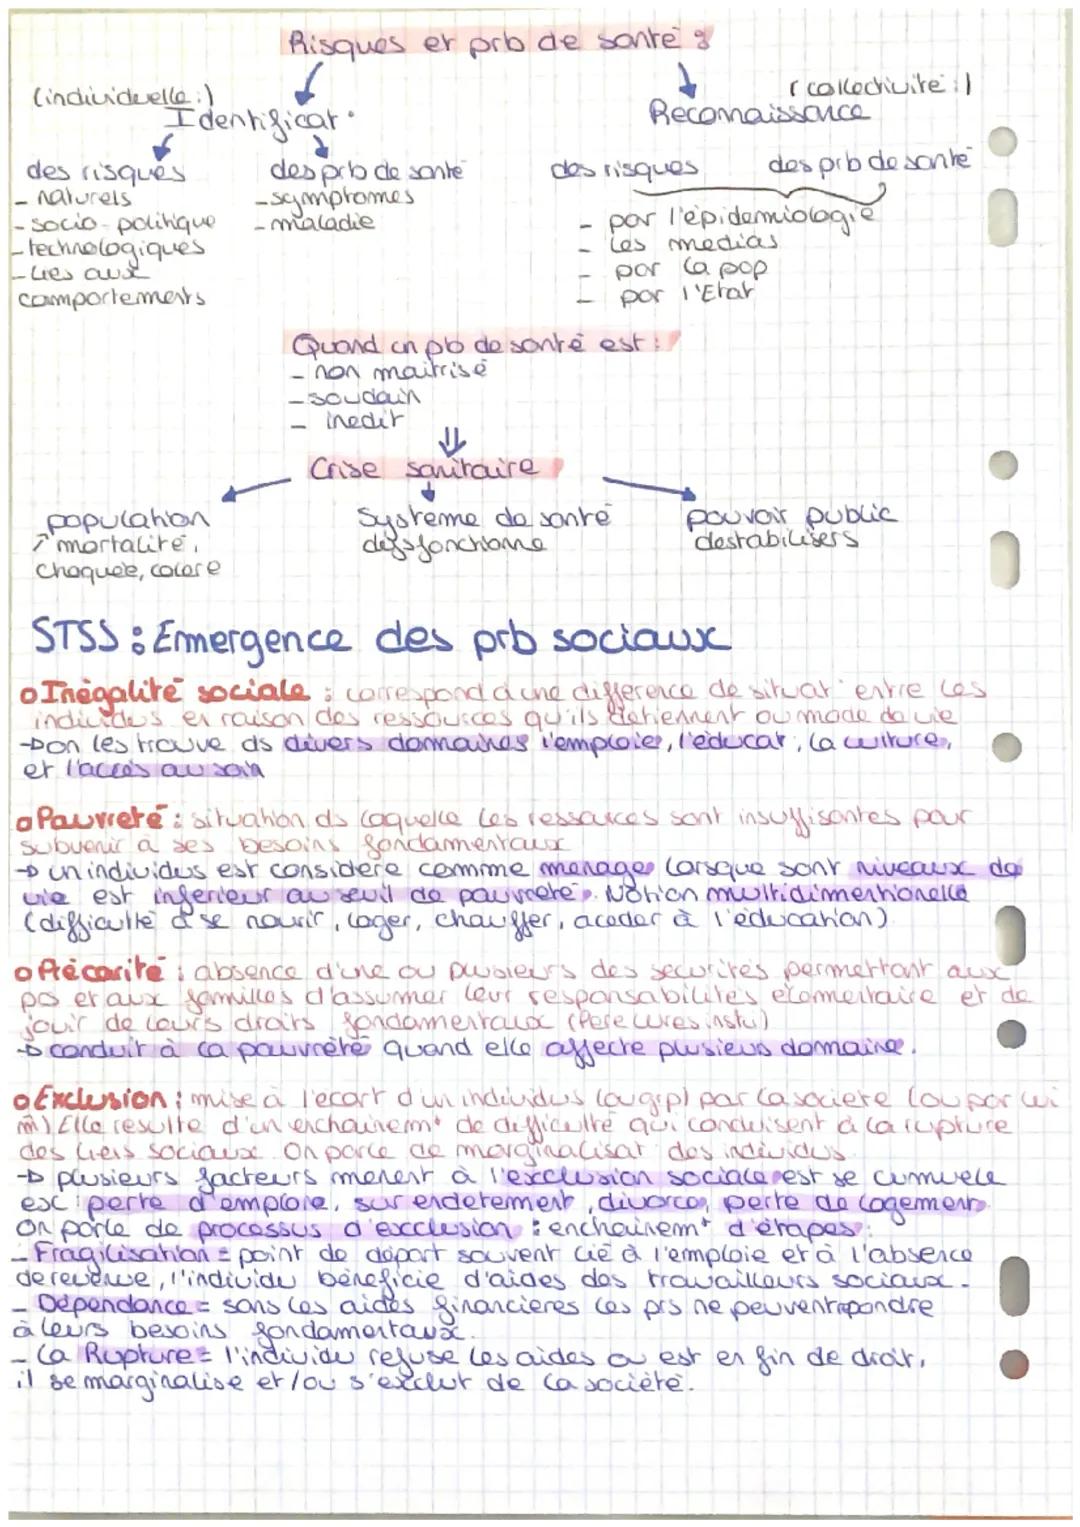 Risques et prb de santé :
(individuelle :)
(collectivité :)
Identificat°
Reconnaissance
des risques
- naturels
- socio-politique
- technologiques
- liés aux
comportements
des prb de santé
- symptomes
- maladie
des risques
des prb de santé
- par l'épidemiologie
- les medias
- par la pop
- par l'Etat
Quand un pb de santé est :
- non maitrisé
- soudain
- inedit
Crise sanitaire
population
↗ mortalité,
choquée, colere
Systeme de santé
dysfonctionne
pouvoir public
destabilisers
STSS : Emergence des prb sociaux
o Inégalité sociale : correspond à une difference de situat° entre les
individus en raison des ressources qu'ils detiennent ou mode de vie
→ on les trouve ds divers domaines l'emploie, l'éducat°, la culture,
et l'accès au soin
o Pauvreté : situation ds laquelle les ressources sont insuffisantes pour
subvenir à ses besoins fondamentaux
→ un individus est considéré comme menage lorsque sont niveaux de
vie est inferieur au seuil de pauvreté. Notion multidimentionelle
(difficulté à se nourir, loger, chauffer, acceder à l'éducation)
o Précarité : absence d'une ou plusieurs des securités permettant aux
ps et aux familles d'assumer leur responsabilités élementaire et de
jouir de leurs droits fondamentaux (Pere wresinski)
→ conduit à la pauvrété quand elle affecte plusieurs domaine.
o Exclusion : mise à l'ecart d'un individus (ou grp) par la société (ou par lui
m̂) Elle resulte d'un enchainemt de difficulté qui conduisent à la rupture
des liens sociaux. On parle de marginalisat° des individus.
→ plusieurs facteurs menent à l'exclusion sociale est se cumule
ex : perte d'emploie, surendetement, divorce, perte de logement.
On parle de processus d'exclusion : enchainemt d'étapes :
- Fragilisation = point de départ souvent lié à l'emploie et à l'absence
de revenue, l'individu bénéficie d'aides des travailleurs sociaux.
- Dépendance = sans les aides financieres les prs ne peuvent repondre
à leurs besoins fondamentaux.
- la Rupture = l'individu refuse les aides ou est en fin de droit,
il se marginalise et/ou s'exclut de la société.